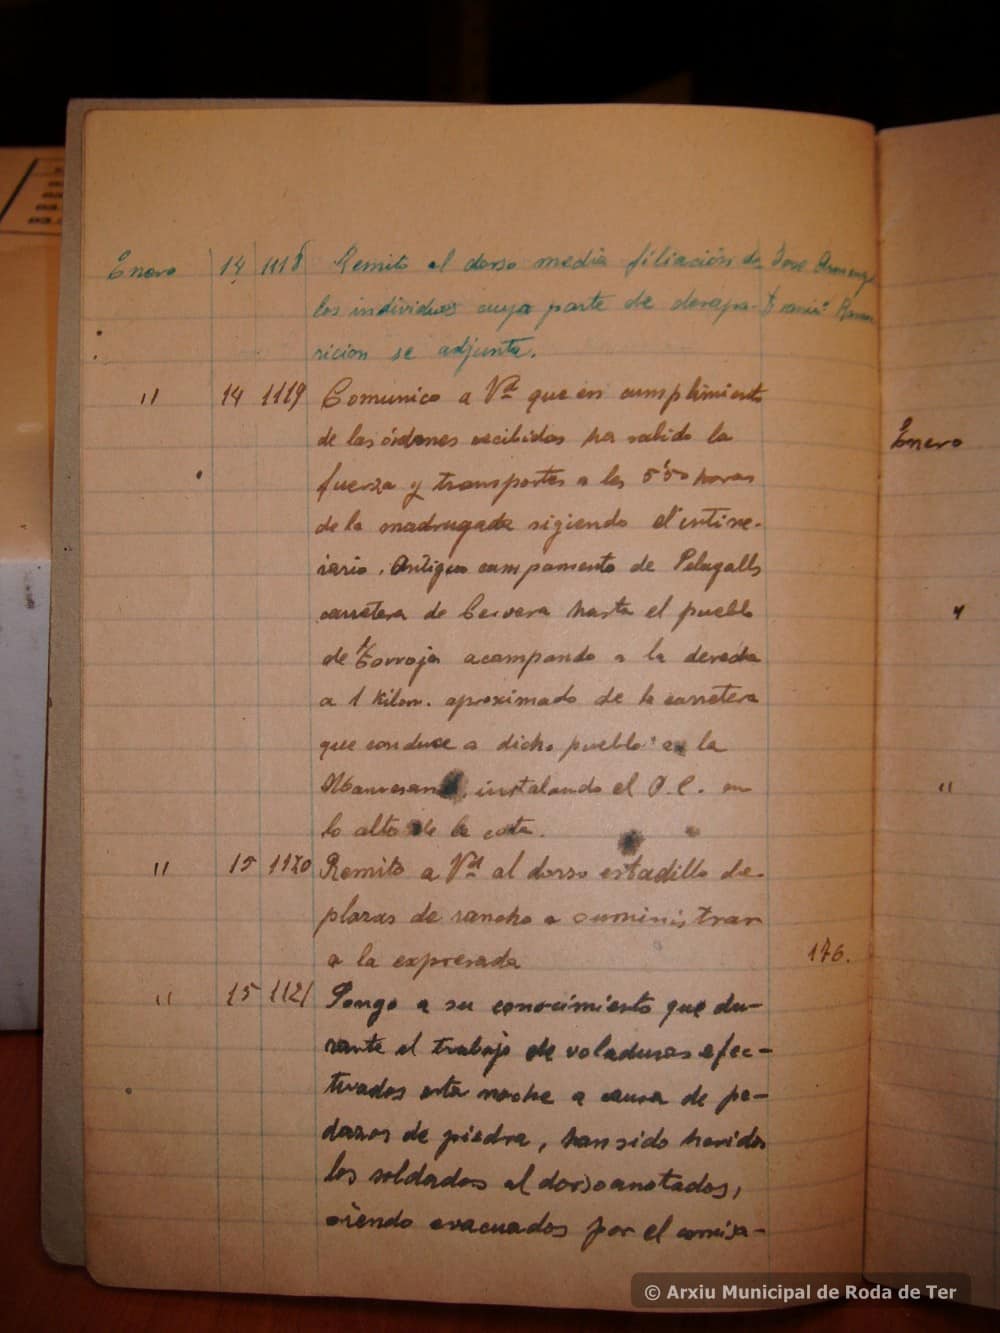 Enero 14 1118 Remito al dorso media filiación de Jose
los individuos cuya parte de desapa-
ricion se adjunta.
" 14 1119 Comunico a Vd que en cumplimiento
de las órdenes recibidas ha salido la
fuerza y transportes a las 5'50 horas
de la madrugada sigiendo el intine-
rario. Antiguo campamento de Pelagalls
carretera de Cervera hasta el pueblo
de Torroja acampando a la derecha
a 1 kilom. aproximado de la carretera
que conduce a dicho pueblo a la
Manresana, instalando el P.C. en
lo alto de la cota.
" 15 1120 Remito a Vd al dorso estadillo de
plazas de rancho a suministrar
a la expresada 176.
" 15 1121 Pongo a su conocimiento que du-
rante el trabajo de voladuras efec-
tuados esta noche a causa de pe-
dazos de piedra, han sido heridos
los soldados al dorso anotados,
siendo evacuados por el comisa-
Enero
"
"
© Arxiu Municipal de Roda de Ter